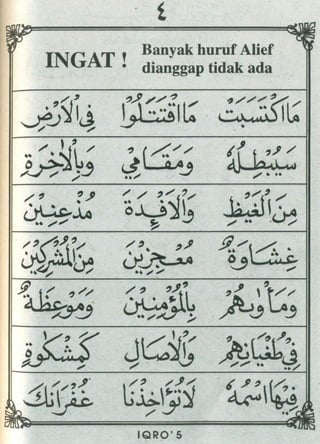 ٤
INGAT !
Banyak huruf Alief
dianggap tidak ada
مَااكْتَسَبَتْ مَااقْتَتَلُوْا فِى الْاَرْضِ
سَيُبْطِلُهٗ وَمَقَامِيْ وَبِالْاٰخِرَةِ
مِنَ الْغَيْظِ وَالْاَفْـِٕدَةَ مُذْعِنِيْنَ
غِشَاوَةٌ مُعٰجِزِيْنَ مِنَ الْمُشْرِكِيْنَ
وَمَأْوٰىهُمْ بِالْمُؤْمِنِيْنَ وَمَوْعِظَةٌ
فِيْ طُغْيَانِهِمْ وَالْاٰصَالِ كَمِشْكٰوةٍ
فِيْهَااسْمُهٗ لَاتُؤَاخِذْنَا غُفْرَانَكَ
IQRO' 5